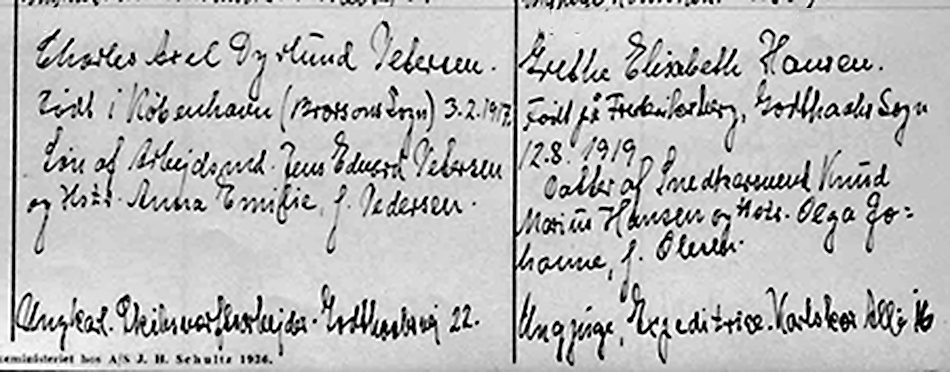 Charles Axel Dyrlund Petersen.
Født i København (Brorsons Sogn) 3.2.1917.
Søn af Arbejdsmd. Jens Eduard Petersen
og Hstr. Anna Emilie, f. Pedersen.
Ungkarl. Skibsværftsarbejder. Godthaabsvej 22.
eministeriet hos A/S J. H. Schultz 1936.
Grethe Elisabeth Hansen.
Født på Frederiksberg, Godthaabs Sogn
12.8.1919
Datter af Snedkersvend Knud
Marius Hansen og Hstr. Olga Jo=
hanne, f. Olesen.
Ungpige, Expeditrice. Allé 16